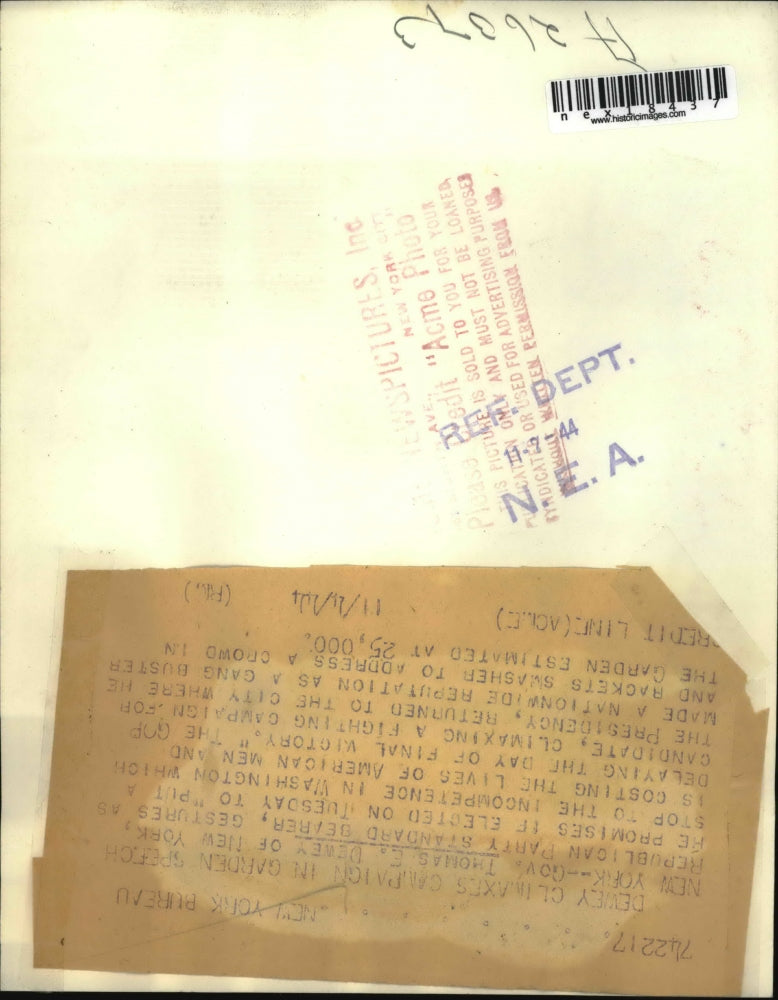 A 26373
nex18437
www.historicimages.com
NEWSPICTURES, Inc
AVE., NEW YORK CITY
Please credit "Acme Photo
THIS PICTURE IS SOLD TO YOU FOR YOUR
PUBLICATION ONLY AND MUST NOT BE LOANED,
SYNDICATED OR USED FOR ADVERTISING PURPOSES
WITHOUT WRITTEN PERMISSION FROM US.
REF. DEPT.
11-21-44
N. E. A.
742217 NEW YORK BUREAU
DEWEY CLIMAXES CAMPAIGN IN GARDEN SPEECH
NEW YORK--GOV. THOMAS E. DEWEY OF NEW YORK,
REPUBLICAN PARTY STANDARD BEARER, GESTURES AS
HE PROMISES IF ELECTED ON TUESDAY TO "PUT A
STOP TO THE INCOMPETENCE IN WASHINGTON WHICH
IS COSTING THE LIVES OF AMERICAN MEN AND
DELAYING THE DAY OF FINAL VICTORY." THE GOP
CANDIDATE, CLIMAXING A FIGHTING CAMPAIGN FOR
THE PRESIDENCY, RETURNED TO THE CITY WHERE HE
MADE A NATIONWIDE REPUTATION AS A GANG BUSTER
AND RACKETS SMASHER TO ADDRESS A CROWD IN
THE GARDEN ESTIMATED AT 25,000.
CREDIT LINE (ACME) 11/4/44 (RM)